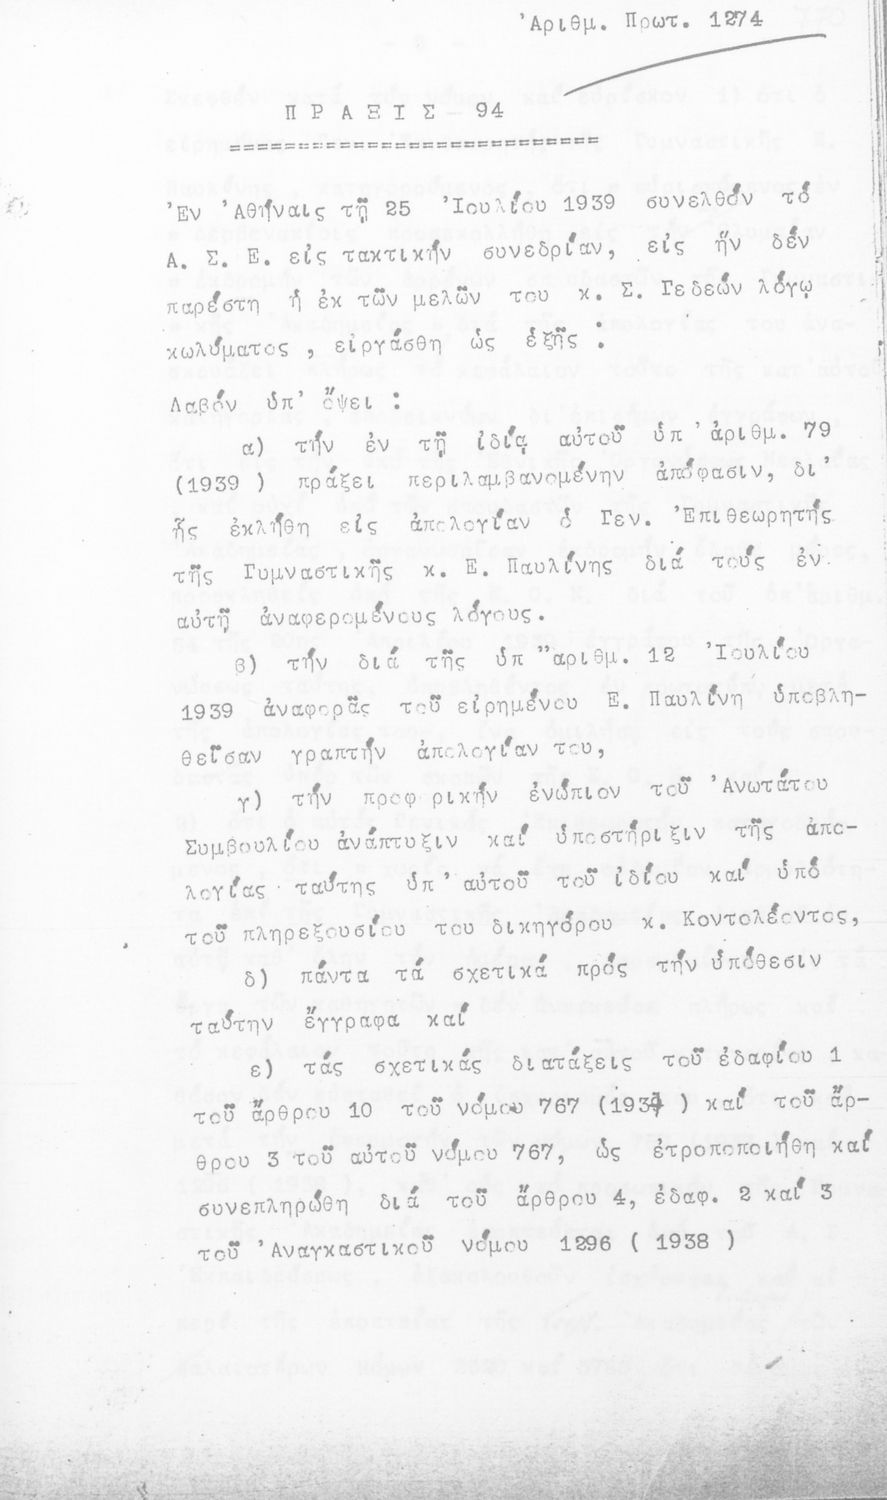 'Αριθμ. Πρωτ. 1274
Π Ρ Α Ξ Ι Σ - 94
===========================
'Εν 'Αθήναις τῇ 25 'Ιουλίου 1939 συνελθόν τό
Α. Σ. Ε. εἰς τακτικήν συνεδρίαν, εἰς ἥν δέν
παρέστη ἡ ἐκ τῶν μελῶν του κ. Σ. Γεδεών λόγῳ
κωλύματος , εἰργάσθη ὡς ἑξῆς :
Λαβόν ὑπ' ὄψει :
α) τήν ἐν τῇ ἰδίᾳ αὐτοῦ ὑπ 'ἀριθμ. 79
(1939 ) πράξει περιλαμβανομένην ἀπόφασιν, δι'
ἧς ἐκλήθη εἰς ἀπολογίαν ὁ Γεν. 'Επιθεωρητής
τῆς Γυμναστικῆς κ. Ε. Παυλίνης διά τούς ἐν
αὐτῇ ἀναφερομένους λόγους.
β) τήν διά τῆς ὑπ "αριθμ. 12 'Ιουλίου
1939 ἀναφορᾶς τοῦ εἰρημένου Ε. Παυλίνη ὑποβλη-
θεῖσαν γραπτήν ἀπολογίαν του,
γ) τήν προφ ρικήν ἐνώπιον τοῦ 'Ανωτάτου
Συμβουλίου ἀνάπτυξιν καί ὑποστήριξιν τῆς ἀπο-
λογίας ταύτης ὑπ' αὐτοῦ τοῦ ἰδίου καί ὑπό
τοῦ πληρεξουσίου του δικηγόρου κ. Κοντολέοντος,
δ) πάντα τά σχετικά πρός τήν ὑπόθεσιν
ταύτην ἔγγραφα καί
ε) τάς σχετικάς διατάξεις τοῦ ἐδαφίου 1
τοῦ ἄρθρου 10 τοῦ νόμου 767 (1937 ) καί τοῦ ἄρ-
θρου 3 τοῦ αὐτοῦ νόμου 767, ὡς ἐτροποποιήθη καί
συνεπληρώθη διά τοῦ ἄρθρου 4, ἐδαφ. 2 καί 3
τοῦ 'Αναγκαστικοῦ νόμου 1296 ( 1938 )